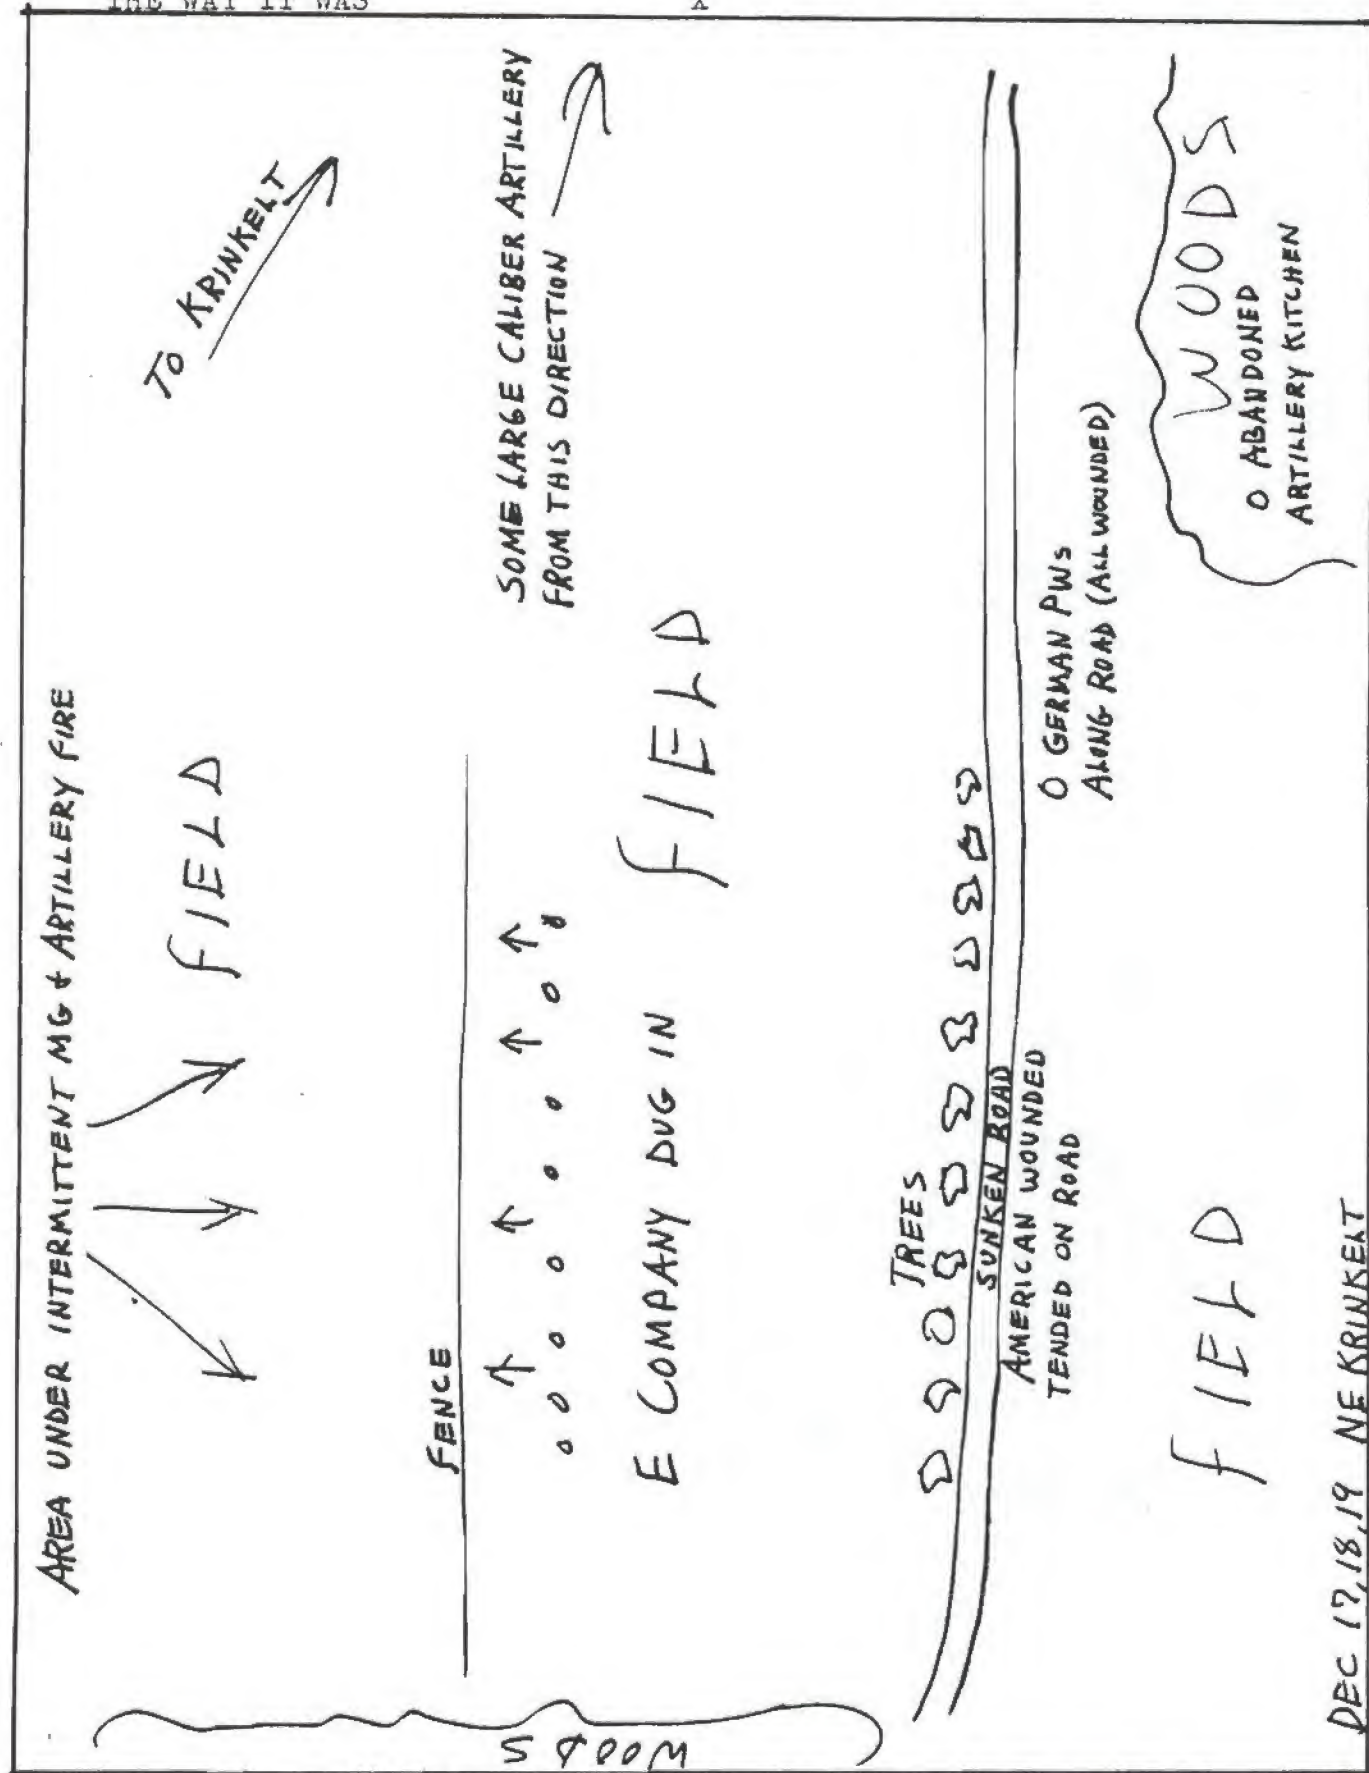 THE WAY IT WAS
AREA UNDER INTERMITTENT MG & ARTILLERY FIRE
TO KRINKELT
FIELD
FENCE
SOME LARGE CALIBER ARTILLERY
FROM THIS DIRECTION
E COMPANY DUG IN
FIELD
WOODS
TREES
SUNKEN ROAD
AMERICAN WOUNDED
TENDED ON ROAD
GERMAN PWs
ALONG ROAD (ALL WOUNDED)
WOODS
ABANDONED
ARTILLERY KITCHEN
FIELD
DEC 17, 18, 19 NE KRINKELT